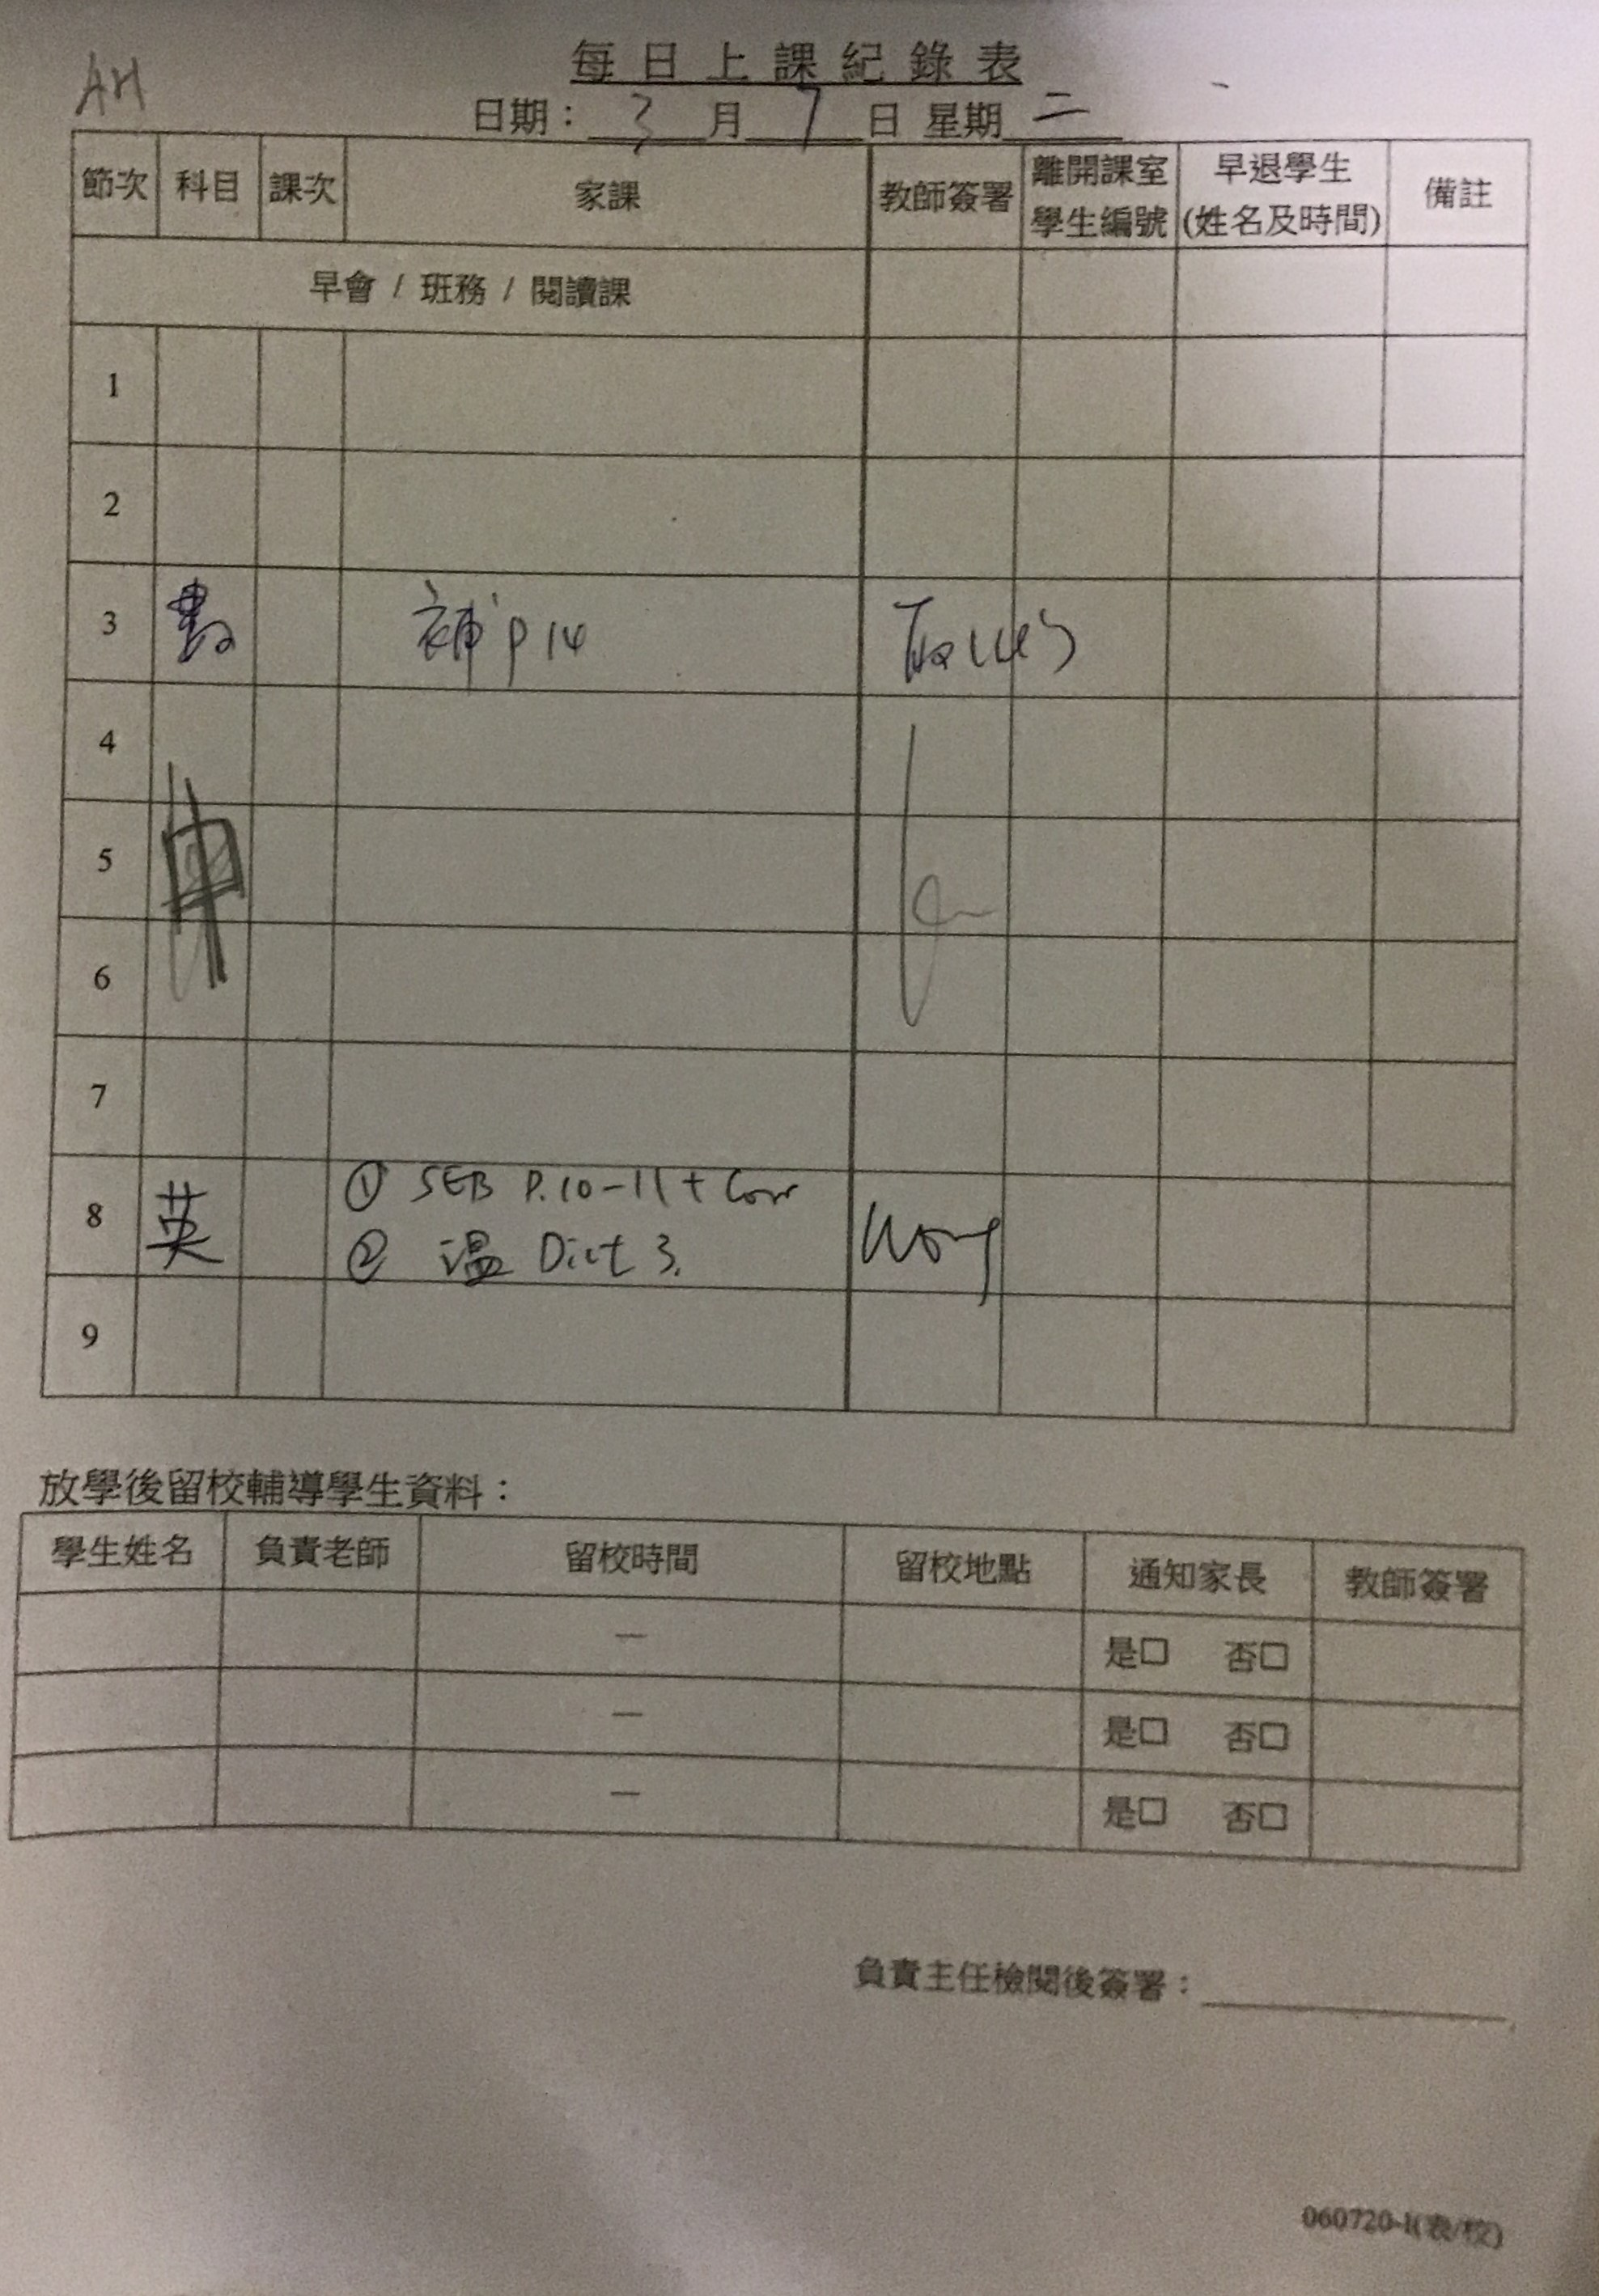 AH
每日上課紀錄表
日期：3月7日 星期二
節次 科目 課次 家課 教師簽署 離開課室學生編號 早退學生(姓名及時間) 備註
早會 / 班務 / 閱讀課
1
2
3 數 補 p 14
4
5 中
6
7
8 英 ① SEB P.10-11 + Corr Wong
② 温 Dict 3.
9
放學後留校輔導學生資料：
學生姓名 負責老師 留校時間 留校地點 通知家長 教師簽署
— 是□ 否□
— 是□ 否□
— 是□ 否□
負責主任檢閱後簽署：
060720-1(表/校)